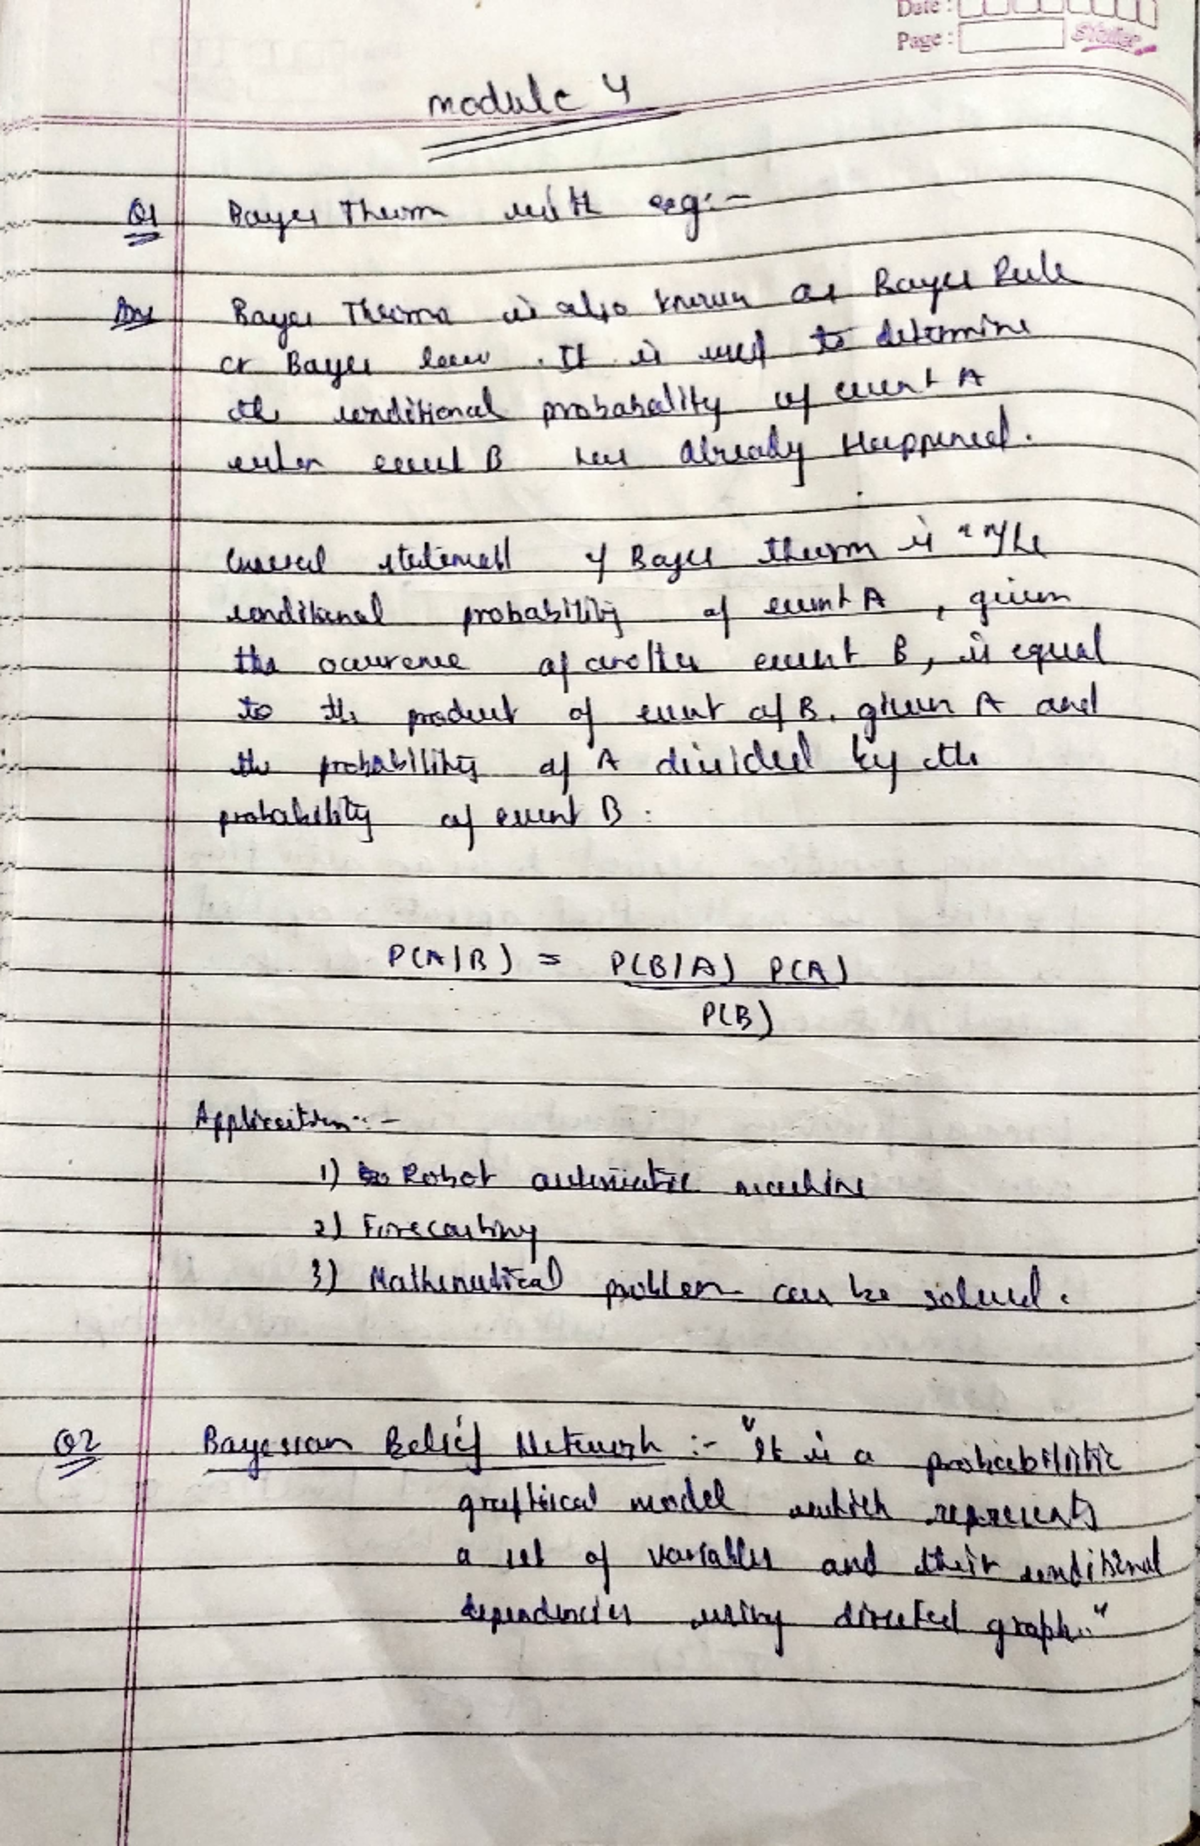 Date :
Page :
Module 4
Q1 Bayes Therm with eg:-
Ans Bayes Therma is also known as Bayes Rule
or Bayes law . It is used to determine
the conditional probabality of event A
when event B has already Happened.
General statement of Bayes therm is "The
conditional probability of event A , given
the ocurrence of another event B, is equal
to the product of event of B, given A and
the probability of A divided by the
probability of event B.
P(A/B) = P(B/A) P(A)
P(B)
Application:-
1) Robot automatic machine
2) Forecasting
3) Mathematical problem can be solved.
Q2 Bayesian Belief Network :- "It is a probabilistic
graphical model which represents
a set of variables and their conditional
dependencies using directed graph."